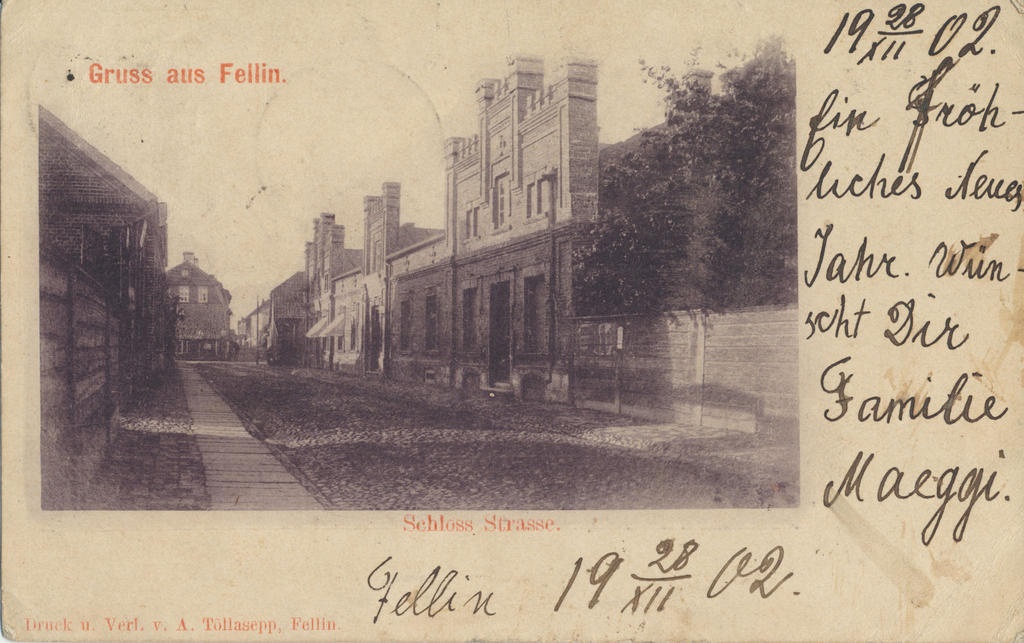 Gruss aus Fellin.
19 28/XII 02.
Ein Fröh-
liches Neues
Jahr. Wün-
scht Dir
Familie
Maeggi.
Schloss Strasse.
Fellin 19 28/XII 02.
Druck u. Verl. v. A. Töllasepp, Fellin.